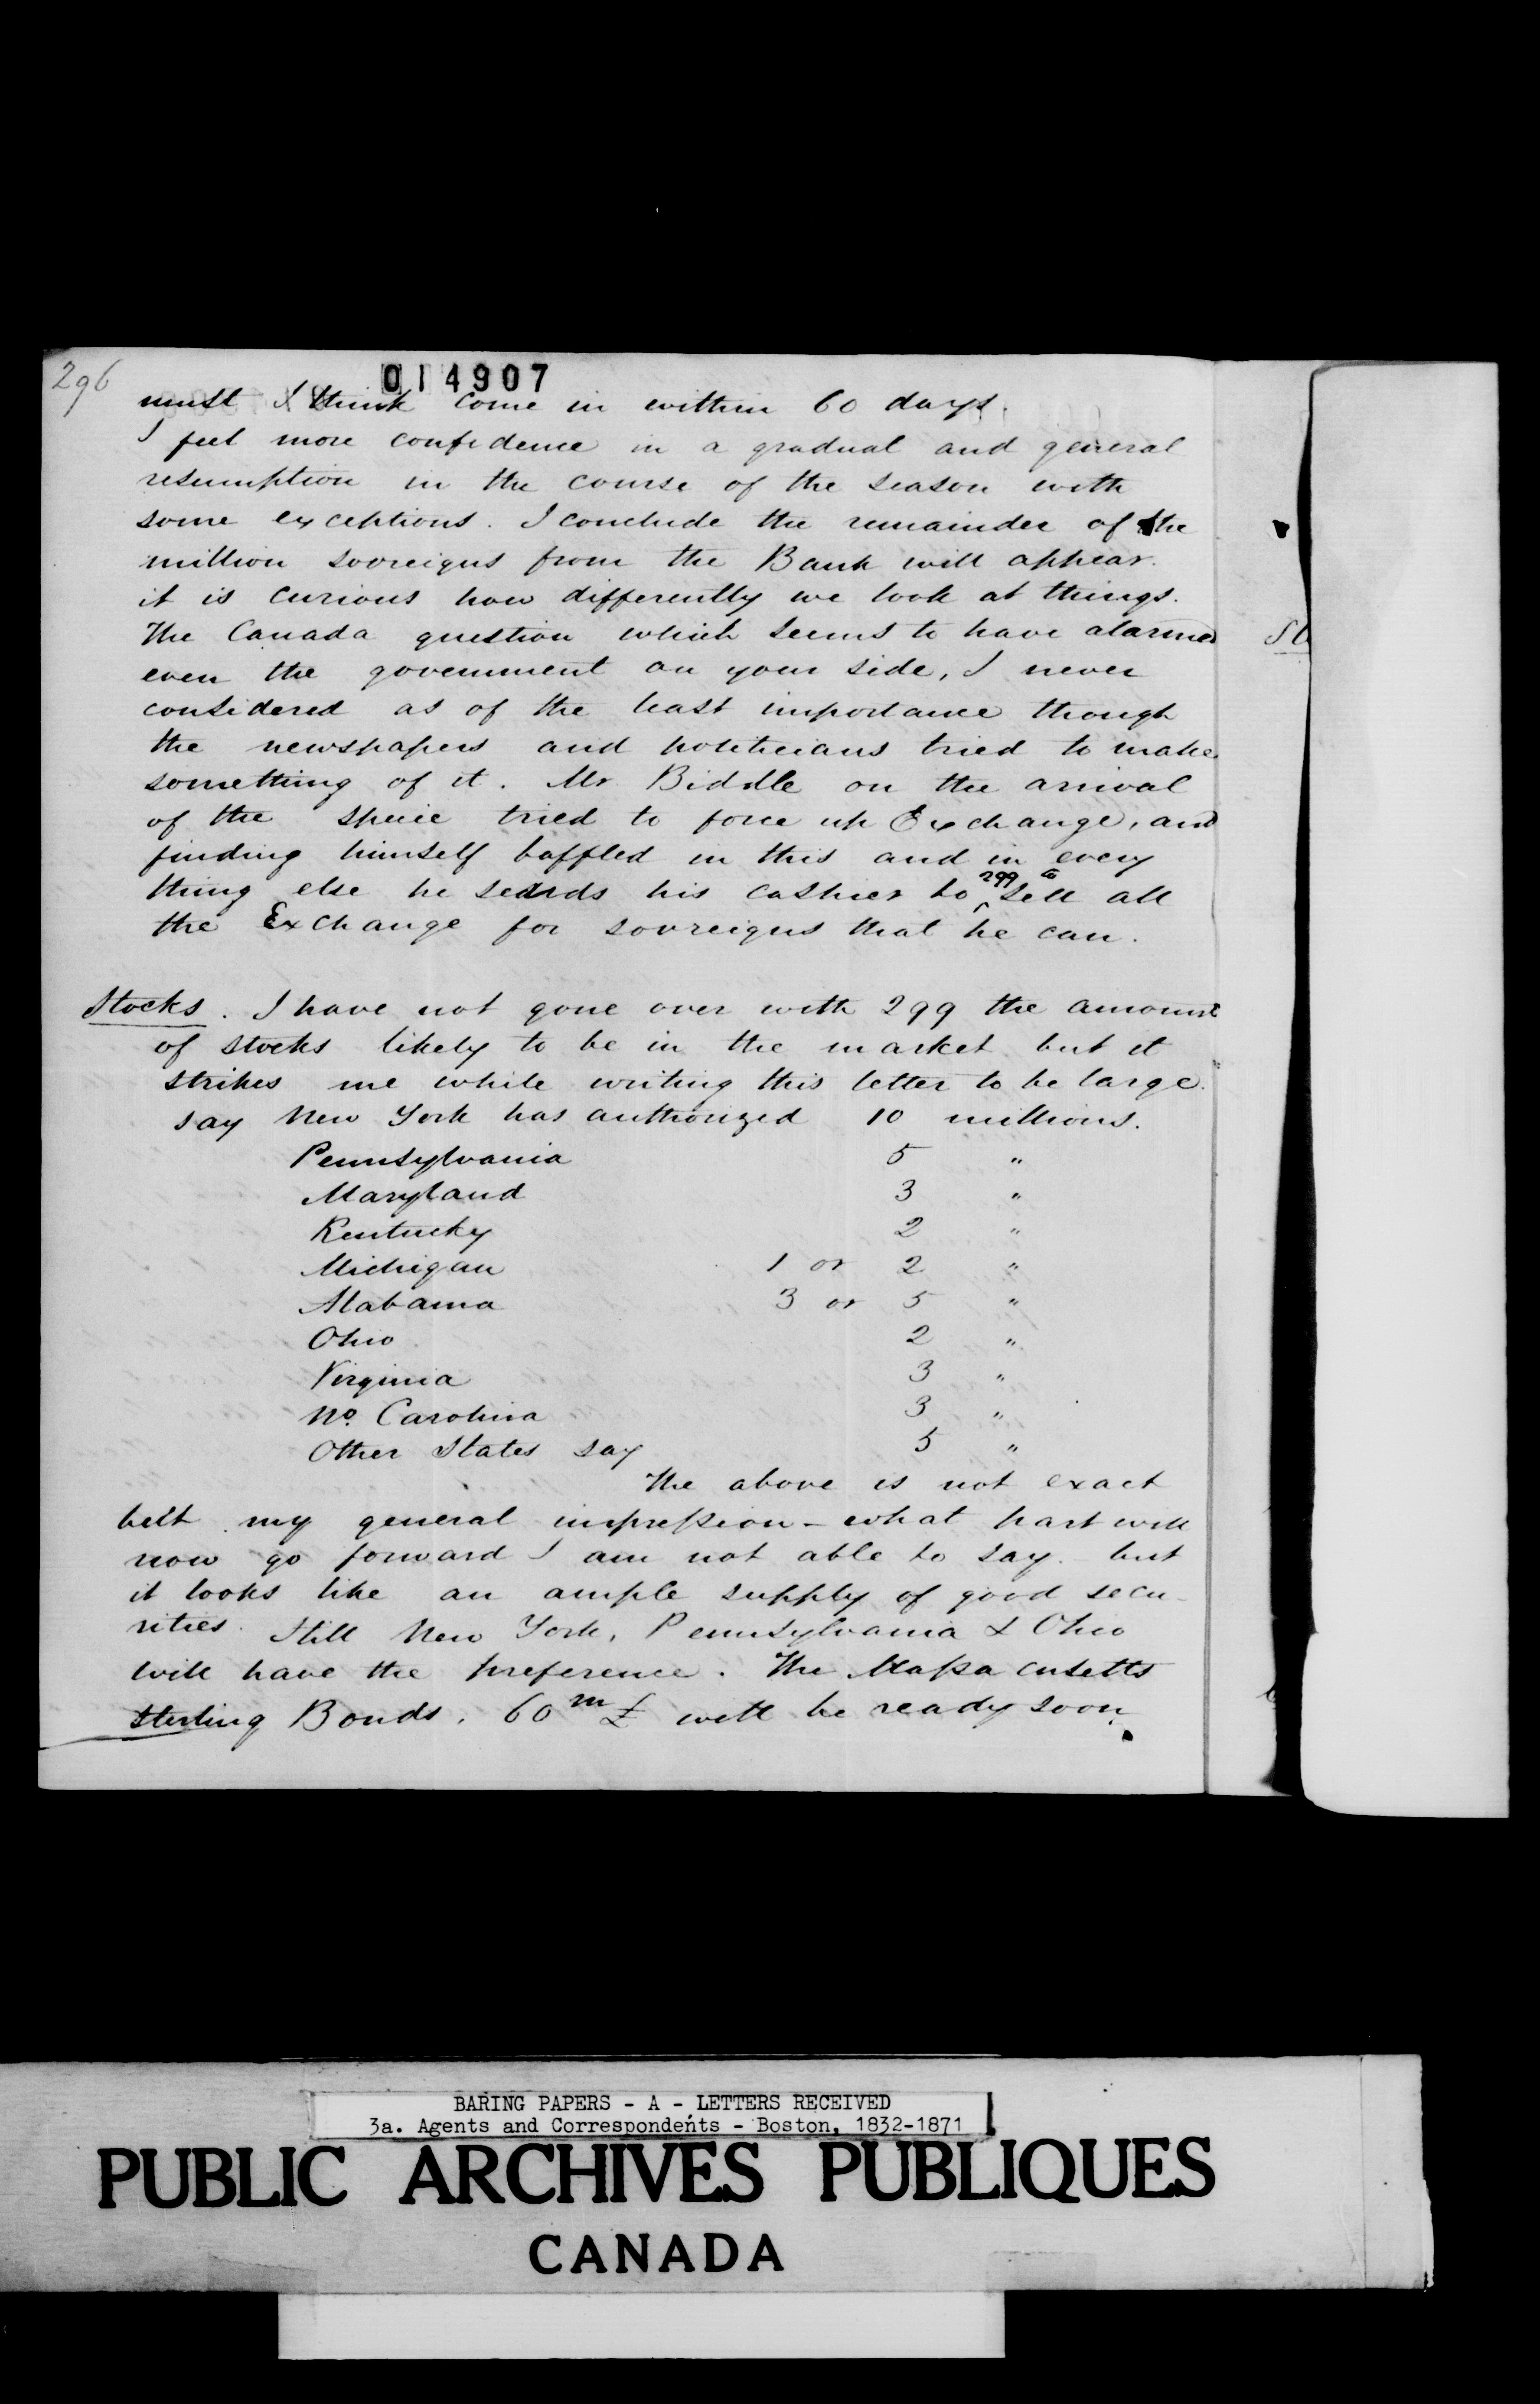 296
014907
must I think come in within 60 days.
I feel more confidence in a gradual and general
resumption in the course of the season with
some exceptions. I conclude the remainder of the
million sovreigns from the Bank will appear.
it is curious how differently we look at things.
The Canada question which seems to have alarmed
even the government on your side, I never
considered as of the least importance though
the newspapers and politicians tried to make
something of it. Mr Biddle on the arrival
of the specie tried to force up Exchange, and
finding himself baffled in this and in every
thing else he sends his cashier to 299 to sell all
the Exchange for sovreigns that he can.
Stocks. I have not gone over with 299 the amount
of stocks likely to be in the market but it
strikes me while writing this letter to be large.
say New York has authorized 10 millions.
Pennsylvania 5 "
Maryland 3 "
Kentucky 2 "
Michigan 1 or 2 "
Alabama 3 or 5 "
Ohio 2 "
Virginia 3 "
No. Carolina 3 "
Other States say 5 "
The above is not exact
but my general impression - what part will
now go forward I am not able to say. but
it looks like an ample supply of good secu-
rities. Still New York, Pennsylvania & Ohio
will have the preference. The Massacusetts
sterling Bonds. 60m £ will be ready soon.
St
BARING PAPERS - A - LETTERS RECEIVED
3a. Agents and Correspondents - Boston, 1832-1871
PUBLIC ARCHIVES PUBLIQUES
CANADA